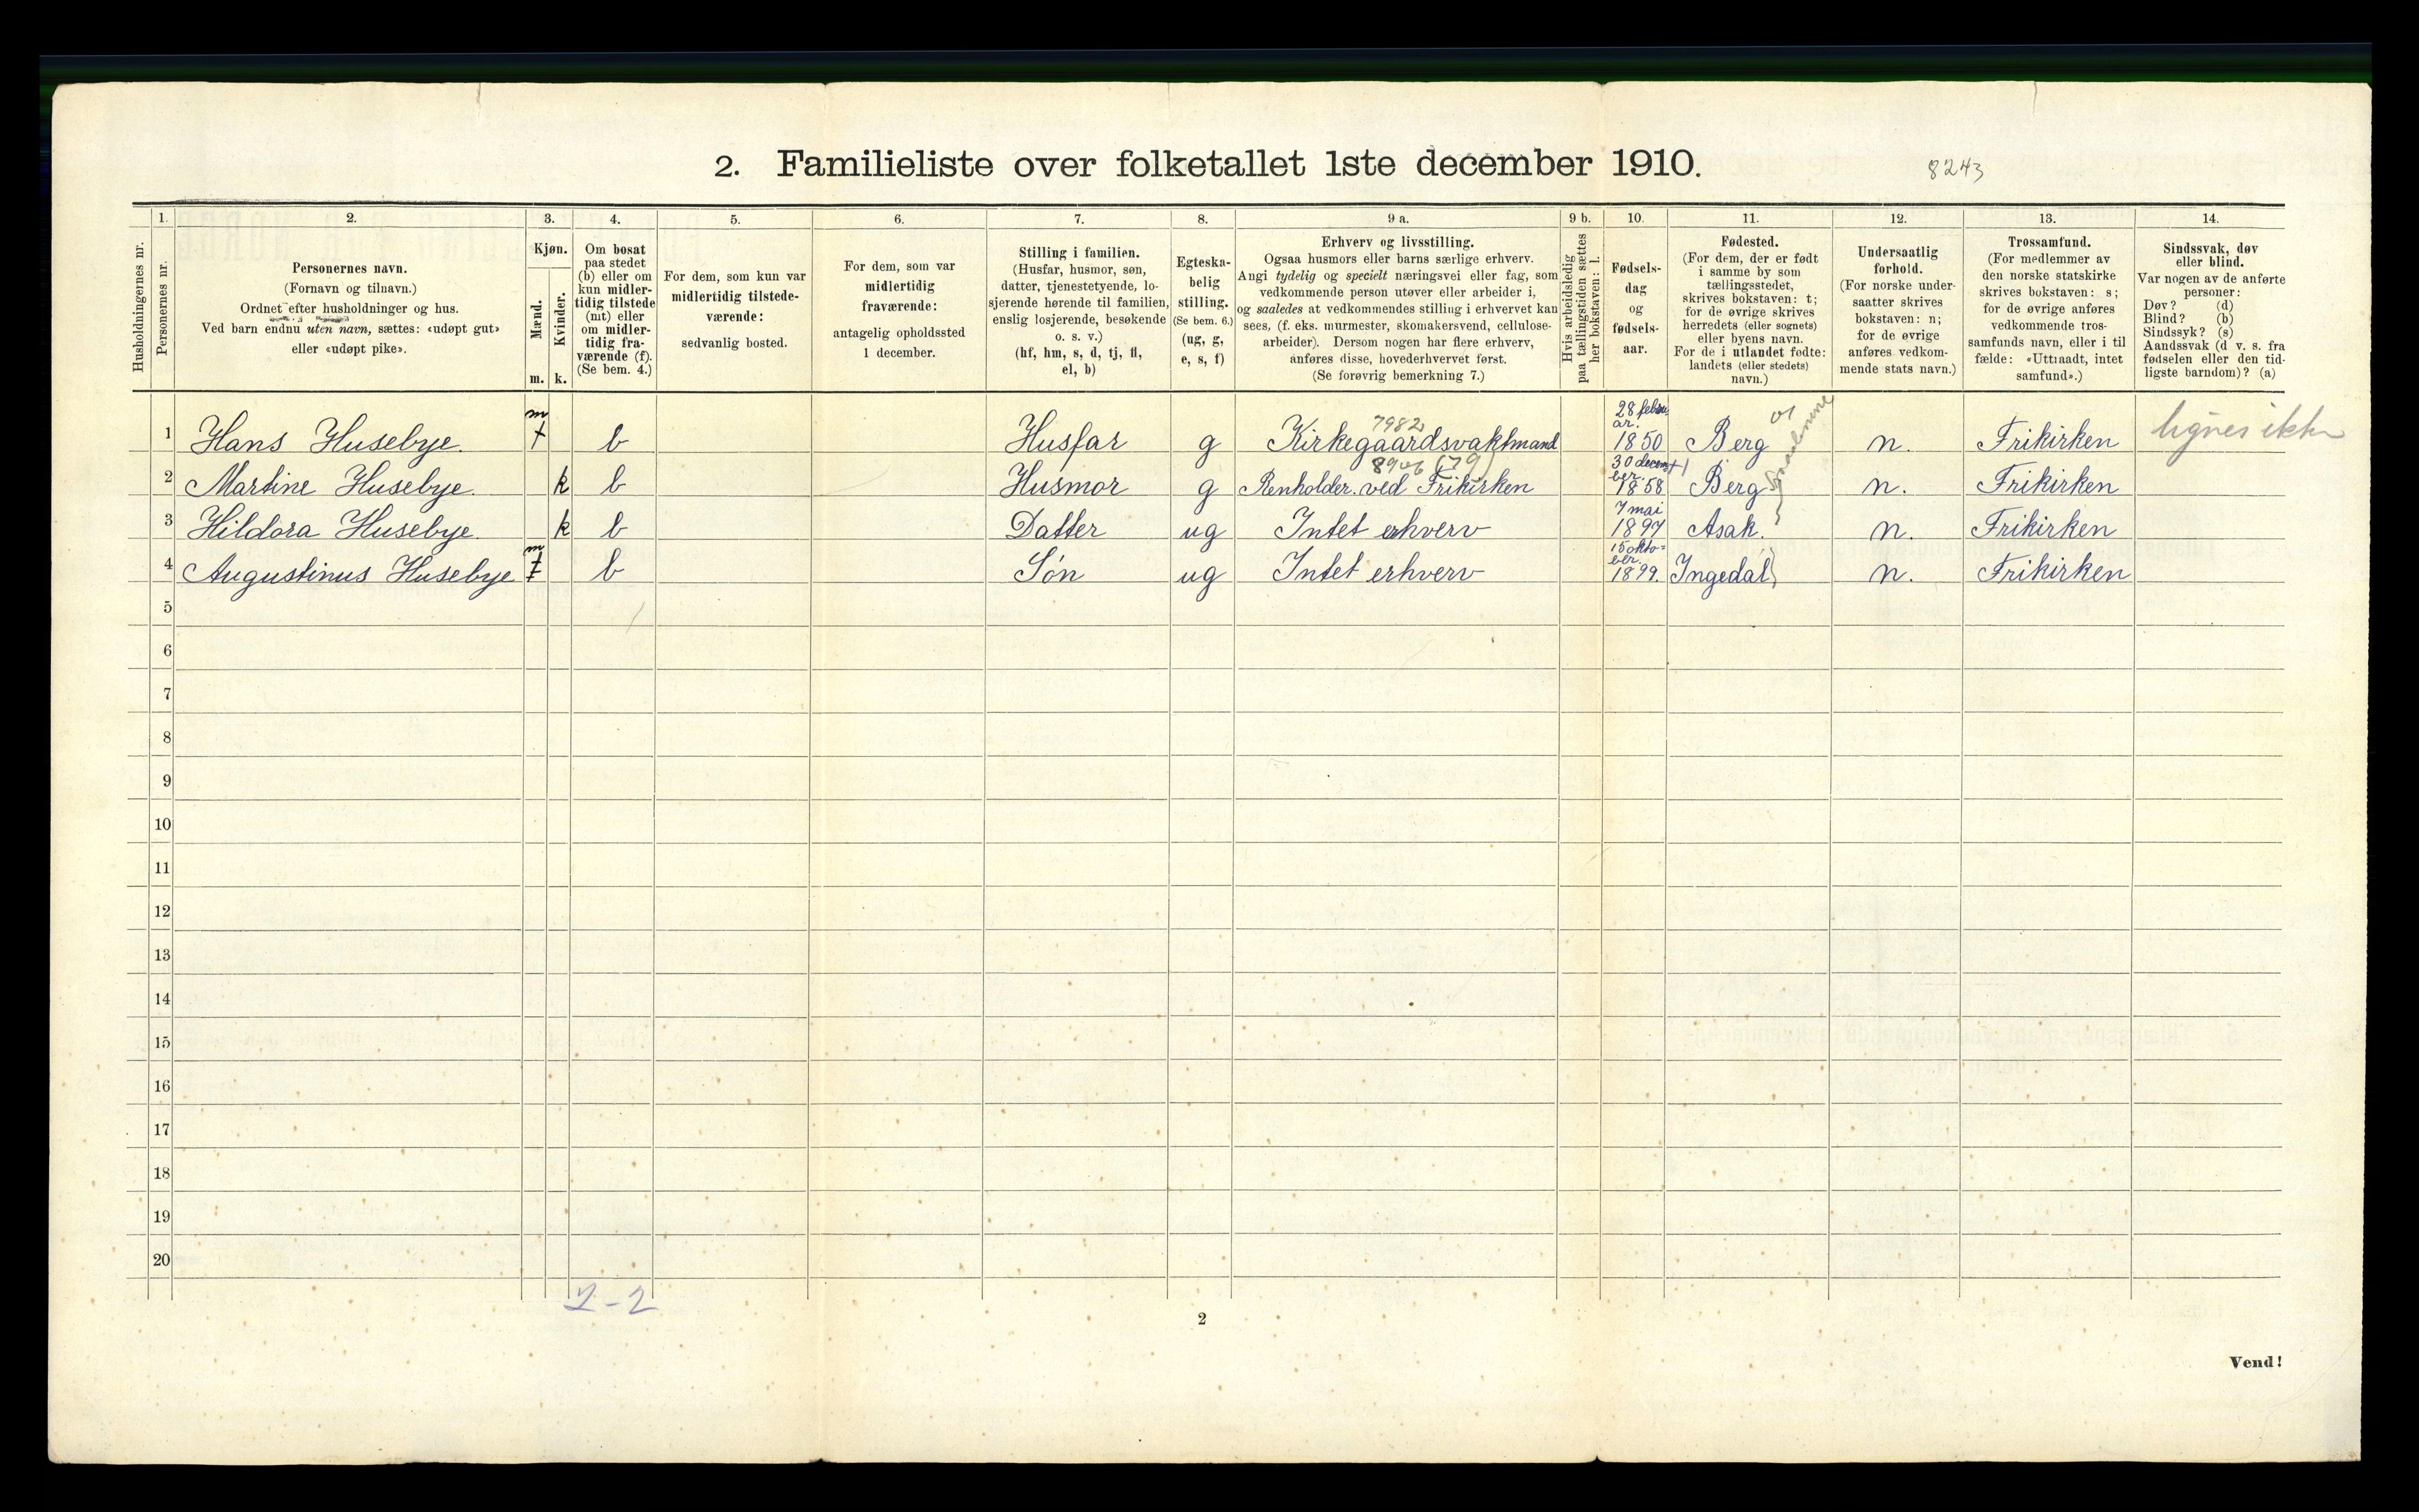 2. Familieliste over folketallet 1ste december 1910.
8243
1. 2. 3. 4. 5. 6. 7. 8. 9 a. 9 b. 10. 11. 12. 13. 14.
Husholdningernes nr.
Personernes nr.
Personernes navn.
(Fornavn og tilnavn.)
Ordnet efter husholdninger og hus.
Ved barn endnu uten navn, sættes: «udøpt gut»
eller «udøpt pike».
Kjøn.
Mænd.
Kvinder.
m. k.
Om bosat
paa stedet
(b) eller om
kun midler-
tidig tilstede
(mt) eller
om midler-
tidig fra-
værende (f).
(Se bem. 4.)
For dem, som kun var
midlertidig tilstede-
værende:
sedvanlig bosted.
For dem, som var
midlertidig
fraværende:
antagelig opholdssted
1 december.
Stilling i familien.
(Husfar, husmor, søn,
datter, tjenestetyende, lo-
sjerende hørende til familien,
enslig losjerende, besøkende
o. s. v.)
(hf, hm, s, d, tj, fl,
el, b)
Egteska-
belig
stilling.
(Se bem. 6.)
(ug, g,
e, s, f)
Erhverv og livsstilling.
Ogsaa husmors eller barns særlige erhverv.
Angi tydelig og specielt næringsvei eller fag, som
vedkommende person utøver eller arbeider i,
og saaledes at vedkommendes stilling i erhvervet kan
sees, (f. eks. murmester, skomakersvend, cellulose-
arbeider). Dersom nogen har flere erhverv,
anføres disse, hovederhvervet først.
(Se forøvrig bemerkning 7.)
Hvis arbeidsledig
paa tællingstiden sættes
her bokstaven: l.
Fødsels-
dag
og
fødsels-
aar.
Fødested.
(For dem, der er født
i samme by som
tællingsstedet,
skrives bokstaven: t;
for de øvrige skrives
herredets (eller sognets)
eller byens navn.
For de i utlandet fødte:
landets (eller stedets)
navn.)
Undersaatlig
forhold.
(For norske under-
saatter skrives
bokstaven: n;
for de øvrige
anføres vedkom-
mende stats navn.)
Trossamfund.
(For medlemmer av
den norske statskirke
skrives bokstaven: s;
for de øvrige anføres
vedkommende tros-
samfunds navn, eller i til
fælde: «Uttraadt, intet
samfund».)
Sindssvak, døv
eller blind.
Var nogen av de anførte
personer:
Døv? (d)
Blind? (b)
Sindssyk? (s)
Aandssvak (d v. s. fra
fødselen eller den tid-
ligste barndom)? (a)
m 7982 28 februar.
1 Hans Husebye. b Husfar g Kirkegaardsvaktmand 1850 Berg n. Frikirken lignes ikke
8946 (79) 30 december
2 Martine Husebye. k b Husmor g Renholder. ved Frikirken 1858 Berg n. Frikirken
7 mai
3 Hildora Husebye. k b Datter ug Intet erhverv 1897 Asak. n. Frikirken
m 15 oktober
4 Augustinus Husebye b Søn ug Intet erhverv 1899. Ingedal n. Frikirken
5
6
7
8
9
10
11
12
13
14
15
16
17
18
19
20
2-2
2
Vend!